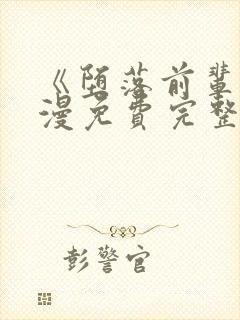 《堕落前辈
漫免费完整
彭警官